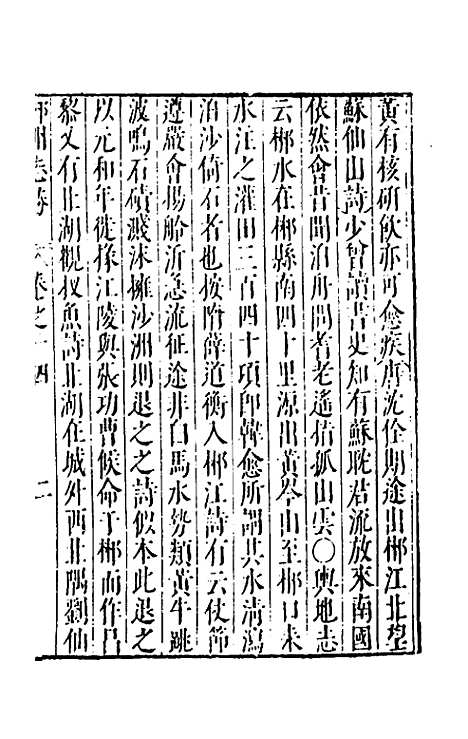 黃有核研飲亦可愈疾唐沈佺期途出郴江北望
蘇仙山詩少曾讀書史知有蘇耽君流放來南國
依然會昔聞泊舟問耆老遙指孤山雲〇輿地志
云郴水在郴縣南四十里源出黃岑山至郴口來
水注之灌田三百四十項即韓愈所謂其水清瀉
泊沙倚石者也按隋薛道衡入郴江詩有云仗節
遵嚴會揚舲泝急流征途非白馬水勢類黃牛跳
波鳴石磧濺沫擁沙洲則退之之詩似本此退之
以元和年徙掾江陵與張功曹候命于郴而作昌
黎又有北湖觀杈魚詩北湖在城外西北隅劉仙
郴州志 卷之十四 二